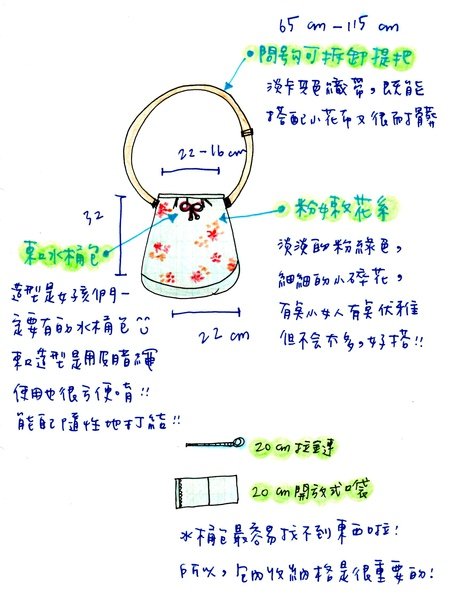 65 cm - 115 cm
問號勾可拆卸提把
淡卡其色織帶，既能
搭配小花布又很耐髒
22-16 cm
32
22 cm
束口水桶包
造型是女孩們一
定要有的水桶包
束口造型是用皮繩
使用也很方便唷!!
能隨性地打結!!
粉嫩花系
淡淡的粉綠色，
細細的小碎花，
有點小女人有點優雅
但不會太多，好搭!!
20 cm 拉鍊
20 cm 開放式口袋
水桶包最容易找不到東西啦!
所以，包內收納格是很重要的!